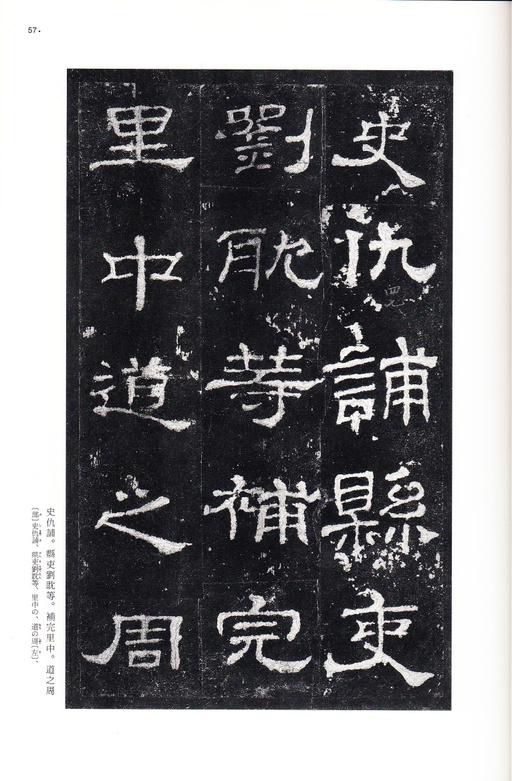 57.
史仇誧縣吏
劉耽等補完
里中道之周
四七
史仇誧。縣吏劉耽等。補完里中。道之周
(部)史仇誧、県吏劉耽等、里中の、道の周(左)、